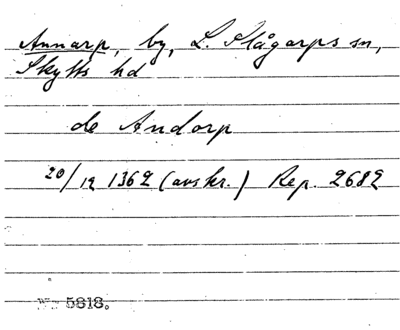 Annarp, by, L. Slågarps sn,
Skytts hd
de Andorp
20/12 1362 (avskr.) Rep. 2682
5818.